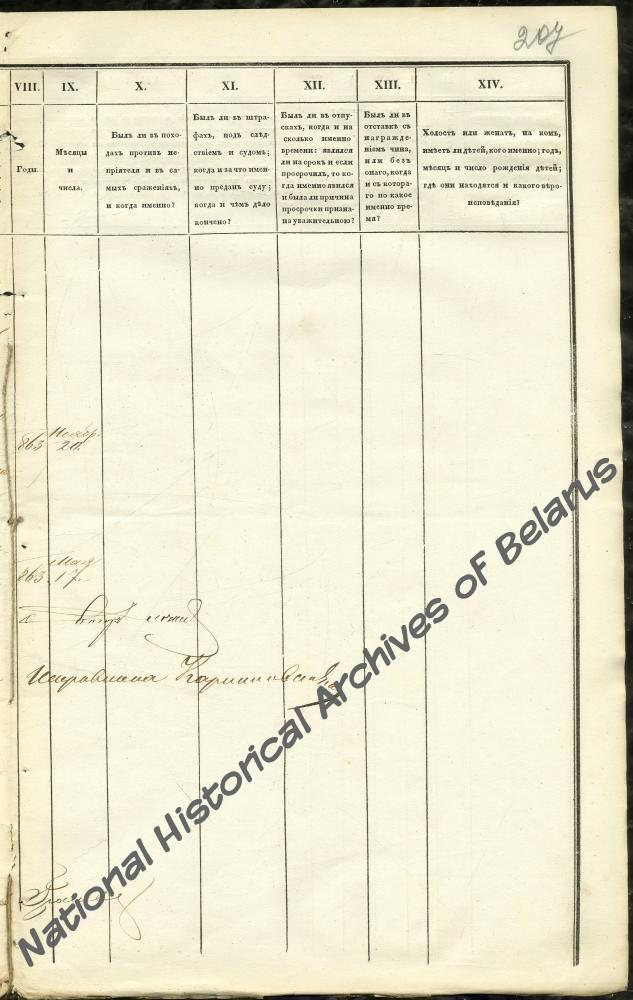 207
VIII.
IX.
X.
XI.
XII.
XIII.
XIV.
Годы.
Мѣсяцы
и
числа.
Былъ ли въ похо-
дахъ противъ не-
пріятеля и въ са-
мыхъ сраженіяхъ,
и когда именно?
Былъ ли въ штра-
фахъ, подъ слѣд-
ствіемъ и судомъ;
когда и за что имен-
но преданъ суду;
когда и чѣмъ дѣло
кончено?
Былъ ли въ отпу-
скахъ, когда и на
сколько именно
времени: явился
ли на срокъ и если
просрочилъ, то ко-
гда именно явился
и была ли причина
просрочки призна-
на уважительною?
Былъ ли въ
отставкѣ съ
награжде-
ніемъ чина,
или безъ
онаго, когда
и съ котора-
го по какое
именно вре-
мя?
Холостъ или женатъ, на комъ,
имѣетъ ли дѣтей, кого именно; годъ,
мѣсяцъ и число рожденія дѣтей;
гдѣ они находятся и какого вѣро-
исповѣданія?
863 Ноябр.
20.
863 Мая
17.
National Historical Archives of Belarus